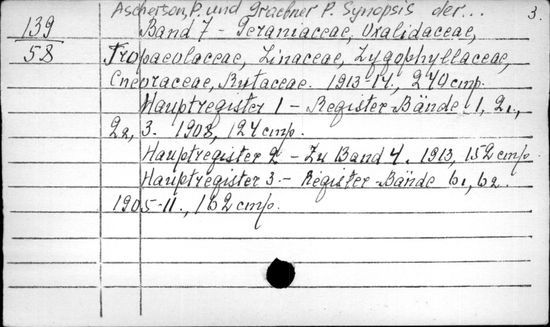 Ascherson, P. und Graebner P. Synopsis der... 3.
139
58
Band 7 - Geraniaceae, Oxalidaceae,
Tropaeolaceae, Linaceae, Zygophyllaceae,
Cneoraceae, Rutaceae. 1913-14., 240 cmp.
Hauptregister 1 - Register-Bände 1, 21,
22, 3. 1908, 124 cmp.
Hauptregister 2 - Zu Band 4. 1913, 152 cmp.
Hauptregister 3. - Register-Bände 61, 62.
1905-11., 162 cmp.